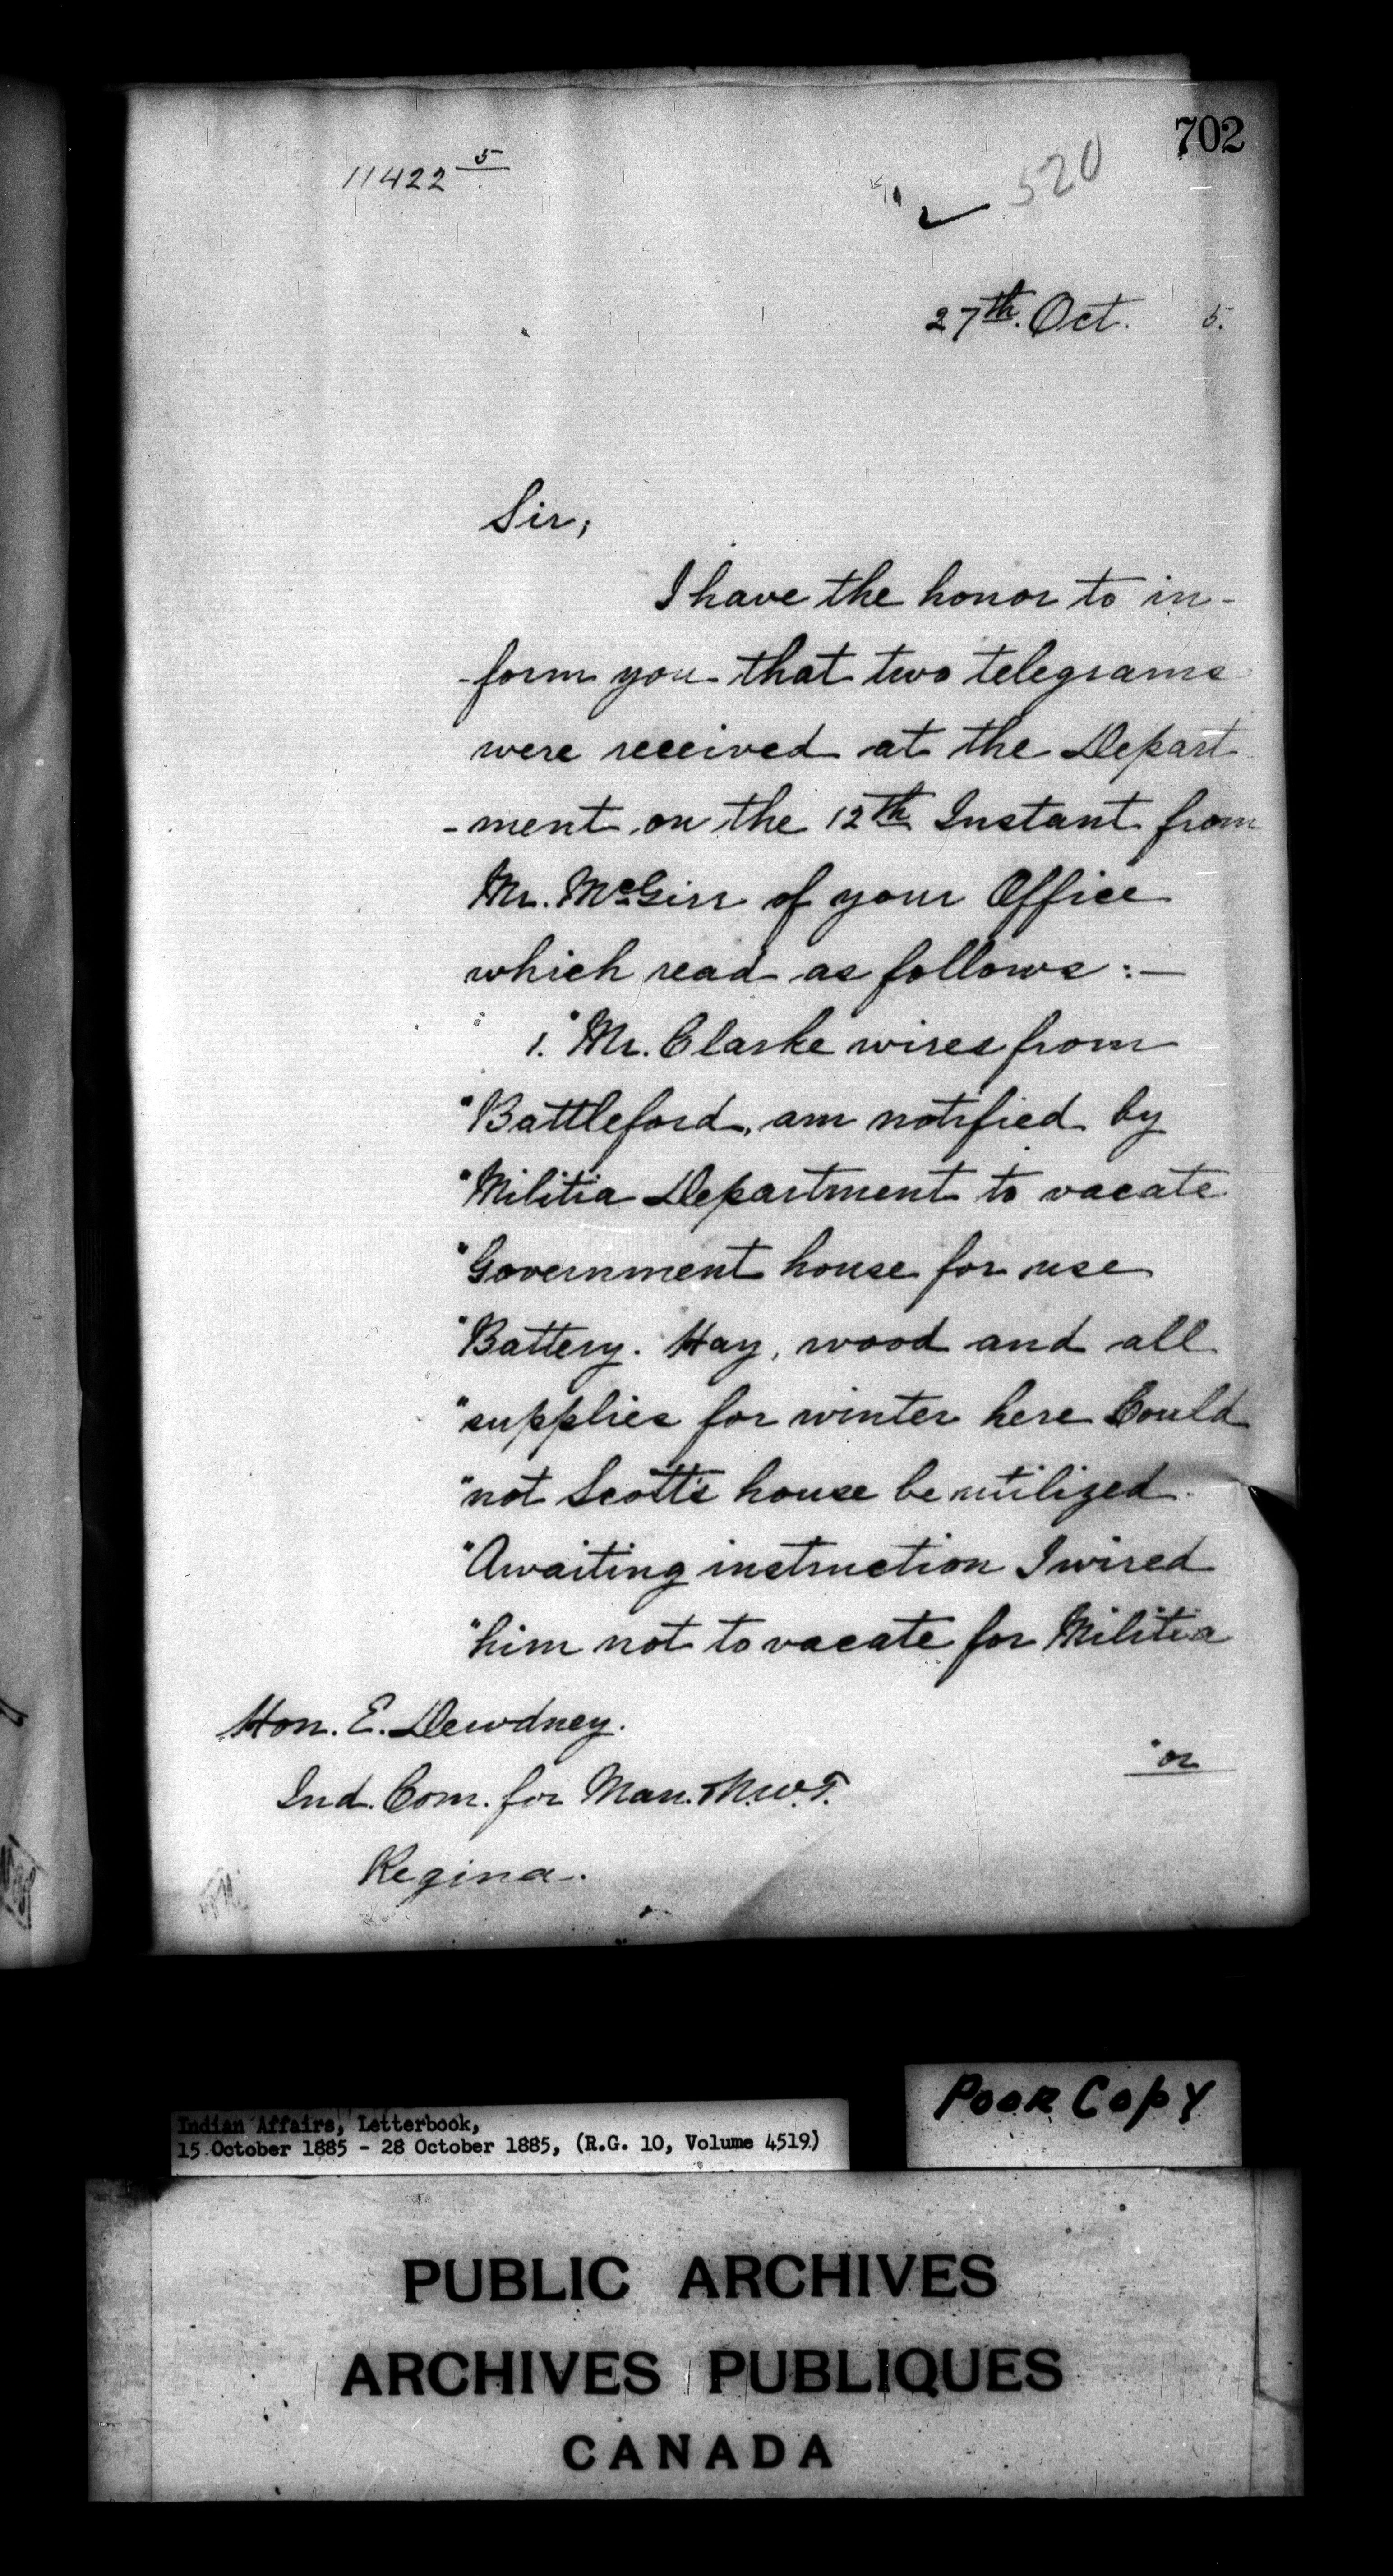 702
11422 5
520
27th. Oct. 5.
Sir;
I have the honor to in-
-form you that two telegrams
were received at the Depart
-ment on the 12th Instant from
Mr. McGirr of your Office
which read as follows:—
1. "Mr. Clarke wires from
"Battleford, am notified by
"Militia Department to vacate
"Government house for use
"Battery. Hay, wood and all
"supplies for winter here Could
"not Scott's house be utilized.
"Awaiting instruction I wired
"him not to vacate for Militia
"or
Hon. E. Dewdney.
Ind. Com. for Man. & N.W.T.
Regina.
Poor Copy
Indian Affairs, Letterbook,
15 October 1885 - 28 October 1885, (R.G. 10, Volume 4519)
PUBLIC ARCHIVES
ARCHIVES PUBLIQUES
CANADA